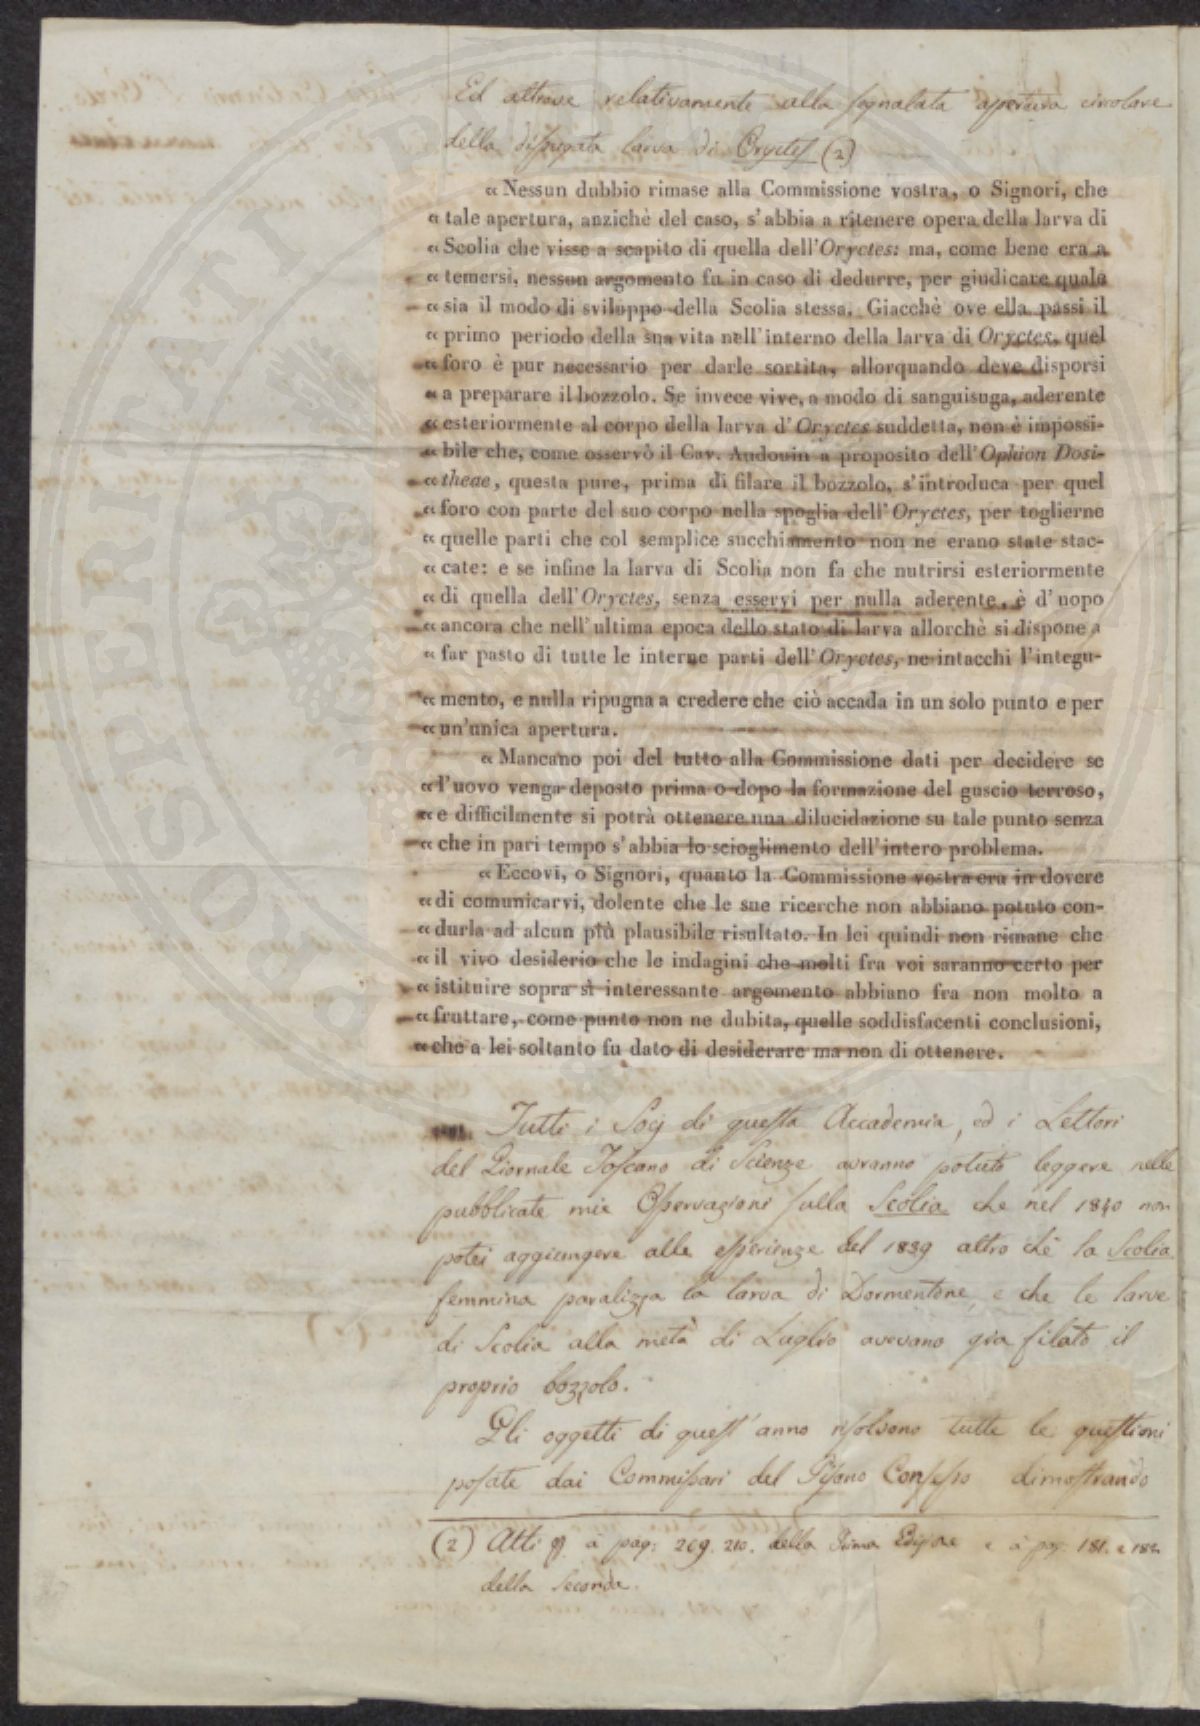 Ed altrove relativamente alla segnalata apertura circolare
della disseccata larva di Oryctes (2)
« Nessun dubbio rimase alla Commissione vostra, o Signori, che
« tale apertura, anzichè del caso, s'abbia a ritenere opera della larva di
« Scolia che visse a scapito di quella dell'Oryctes: ma, come bene era a
« temersi, nessun argomento fu in caso di dedurre, per giudicare quale
« sia il modo di sviluppo della Scolia stessa. Giacchè ove ella passi il
« primo periodo della sua vita nell'interno della larva di Oryctes, quel
« foro è pur necessario per darle sortita, allorquando deve disporsi
« a preparare il bozzolo. Se invece vive, a modo di sanguisuga, aderente
« esteriormente al corpo della larva d'Oryctes suddetta, non è impossi-
« bile che, come osservò il Cav. Audouin a proposito dell'Ophion Dosi-
« theae, questa pure, prima di filare il bozzolo, s'introduca per quel
« foro con parte del suo corpo nella spoglia dell'Oryctes, per toglierne
« quelle parti che col semplice succhiamento non ne erano state stac-
« cate: e se infine la larva di Scolia non fa che nutrirsi esteriormente
« di quella dell'Oryctes, senza esservi per nulla aderente, è d'uopo
« ancora che nell'ultima epoca dello stato di larva allorchè si dispone a
« far pasto di tutte le interne parti dell'Oryctes, ne intacchi l'integu-
« mento, e nulla ripugna a credere che ciò accada in un solo punto e per
« un'unica apertura.
« Mancano poi del tutto alla Commissione dati per decidere se
« l'uovo venga deposto prima o dopo la formazione del guscio terroso,
« e difficilmente si potrà ottenere una dilucidazione su tale punto senza
« che in pari tempo s'abbia lo scioglimento dell'intero problema.
« Eccovi, o Signori, quanto la Commissione vostra era in dovere
« di comunicarvi, dolente che le sue ricerche non abbiano potuto con-
« durla ad alcun più plausibile risultato. In lei quindi non rimane che
« il vivo desiderio che le indagini che molti fra voi saranno certo per
« istituire sopra sì interessante argomento abbiano fra non molto a
« fruttare, come punto non ne dubita, quelle soddisfacenti conclusioni,
« che a lei soltanto fu dato di desiderare ma non di ottenere.
Tutti i Socj di questa Accademia, ed i Lettori
del Giornale Toscano di Scienze avranno potuto leggere nelle
pubblicate mie Osservazioni sulla Scolia che nel 1840 non
potei aggiungere alle esperienze del 1839 altro chè la Scolia
femmina paralizza la larva di Dormentone, e che le larve
di Scolia alla metà di Luglio avevano già filato il
proprio bozzolo.
Gli oggetti di quest'anno risolvono tutte le questioni
posate dai Commissari del Pisano Consesso dimostrando
(2) Atti a pag: 209. 210. della Prima Edizione e a pag. 181. e 182.
della Seconda.
PROSPERITATI PUBLICAE